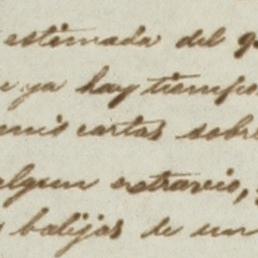 estimada del g
ya hay tiempo
mis cartas sobre
algun estravio,
balijas de un